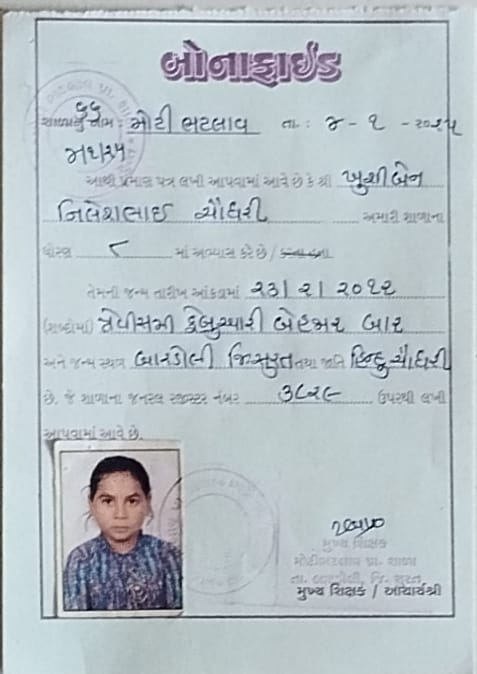 બોનાફાઈડ
શાળાનું નામ : મોટી ભટલાવ તા. : ૪ - ૧ - ૨૦૨૫
આથી પ્રમાણ પત્ર લખી આપવામાં આવે છે કે શ્રી ખુશીબેન
નિલેશભાઈ ચૌધરી અમારી શાળાના
ધોરણ ૮ માં અભ્યાસ કરે છે /
તેમની જન્મ તારીખ આંકડામાં ૨૩/૨/૨૦૧૨
(શબ્દોમાં) ત્રેવીસમી ફેબ્રુઆરી બેહજાર બાર
અને જન્મ સ્થળ બારડોલી જિ.સુરત તથા જાતિ હિન્દુ ચૌધરી
છે. જે શાળાના જનરલ રજીસ્ટર નંબર ૩૮૨૯ ઉપરથી લખી
આપવામાં આવે છે.
મુખ્ય શિક્ષક
મોટીભટલાવ પ્રા. શાળા
તા. બારડોલી, જિ. સુરત
મુખ્ય શિક્ષક / આચાર્યશ્રી